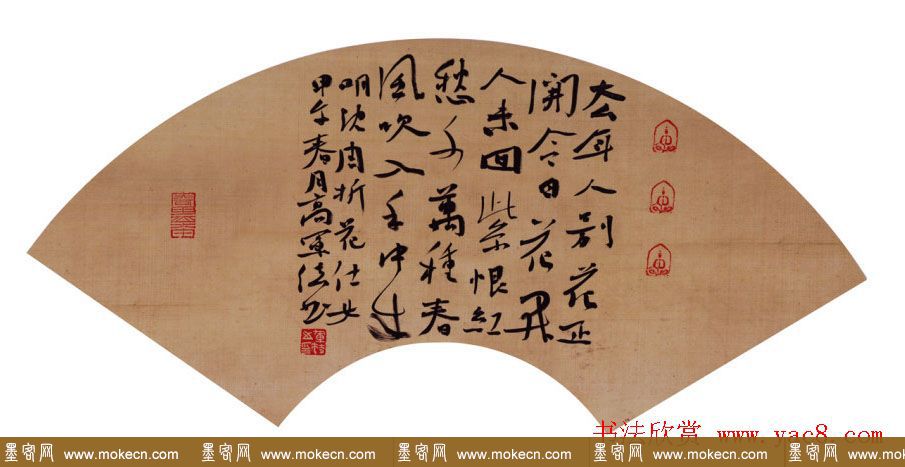 去年人别花正
開今日花开
人未回紫恨红
愁千萬種春
風吹入手中来
明沈周折花仕女
甲午春月高軍书
书法欣赏 www.yac8.com
墨客网 www.mokecn.com 墨客网 www.mokecn.com 墨客网 www.mokecn.com 墨客网 www.mokecn.com 墨客网